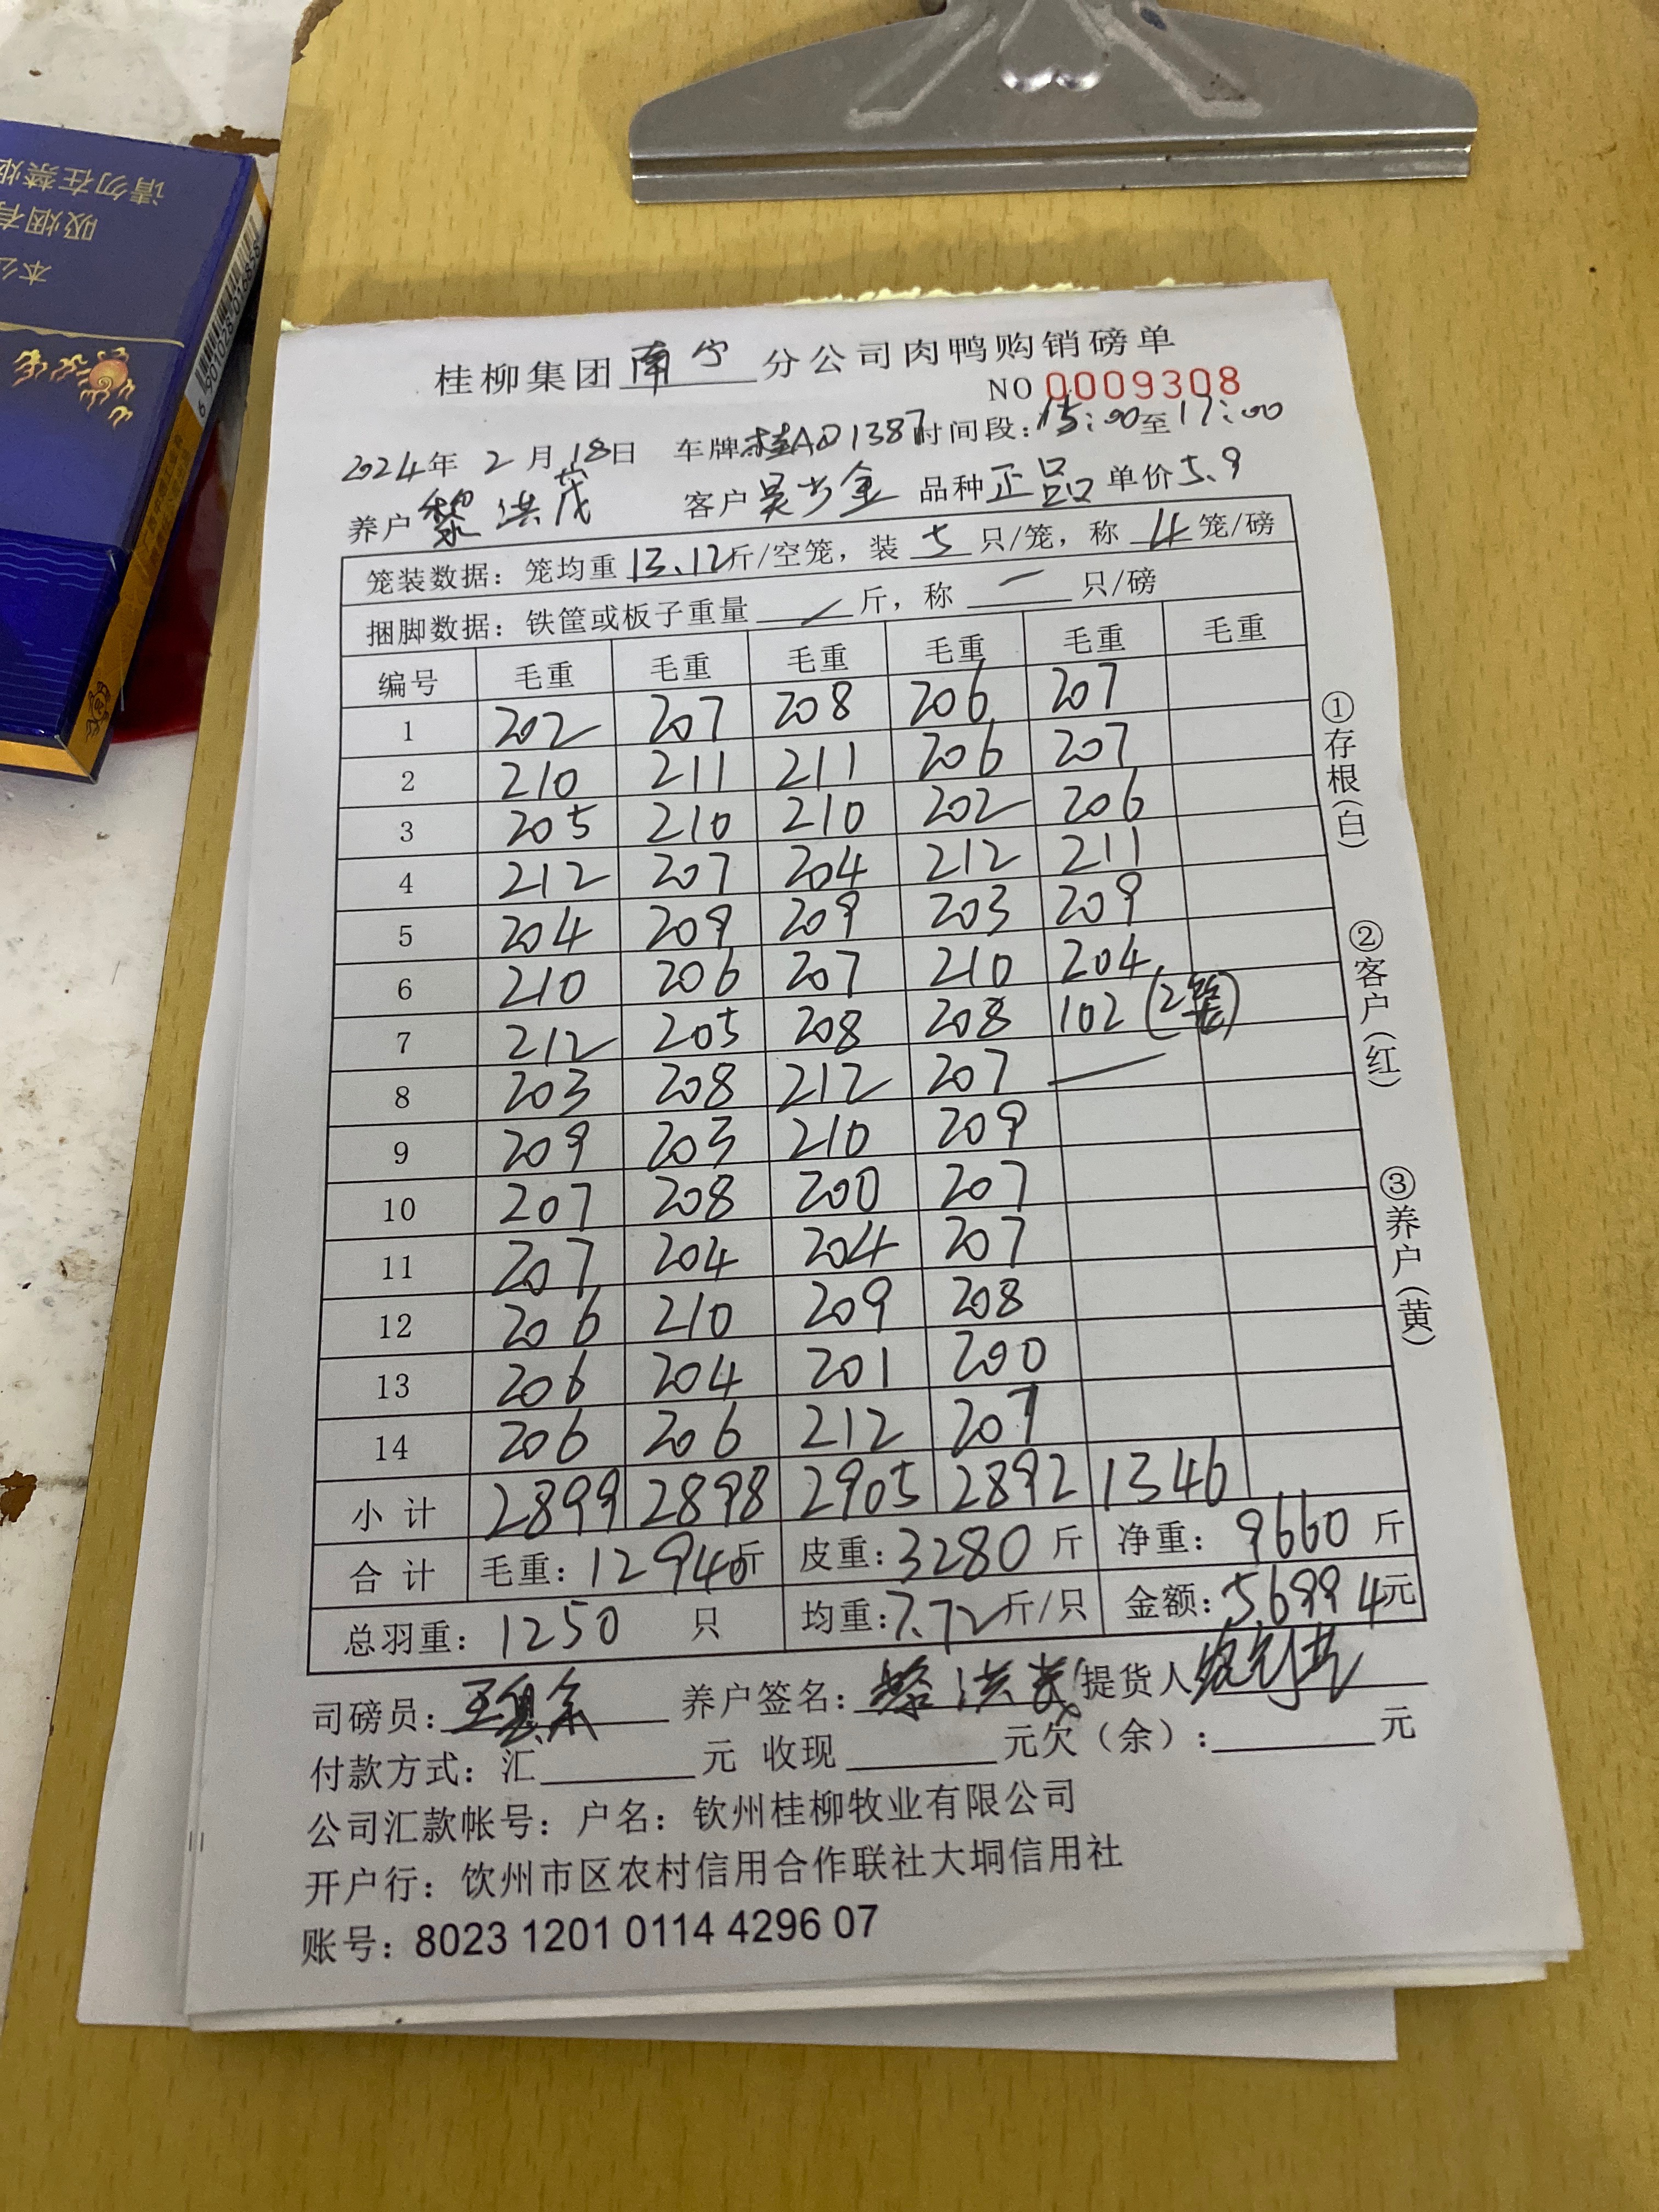 请勿在禁烟
吸烟有
本公
6 901028 016858
桂柳集团南宁分公司肉鸭购销磅单
NO 0009308
2024年 2月18日 车牌桂AD1387时间段:15:00至17:00
养户黎洪茂 客户吴少金 品种正品 单价5.9
笼装数据: 笼均重13.12斤/空笼, 装5只/笼, 称4笼/磅
捆脚数据: 铁筐或板子重量 / 斤, 称 — 只/磅
编号 毛重 毛重 毛重 毛重 毛重 毛重
1 202 207 208 206 207
2 210 211 211 206 207
3 205 210 210 202 206
4 212 207 204 212 211
5 204 209 209 203 209
6 210 206 207 210 204
7 212 205 208 208 102 (2笼)
8 203 208 212 207 —
9 209 203 210 209
10 207 208 200 207
11 207 204 204 207
12 206 210 209 208
13 206 204 201 200
14 206 206 212 207
小计 2899 2898 2905 2892 1346
合计 毛重: 12940斤 皮重: 3280斤 净重: 9660斤
总羽重: 1250 只 均重: 7.72斤/只 金额: 56994元
司磅员: 养户签名: 黎洪茂 提货人
付款方式: 汇 元 收现 元欠(余): 元
公司汇款帐号: 户名: 钦州桂柳牧业有限公司
开户行: 钦州市区农村信用合作联社大垌信用社
账号: 8023 1201 0114 4296 07
①存根(白)
②客户(红)
③养户(黄)